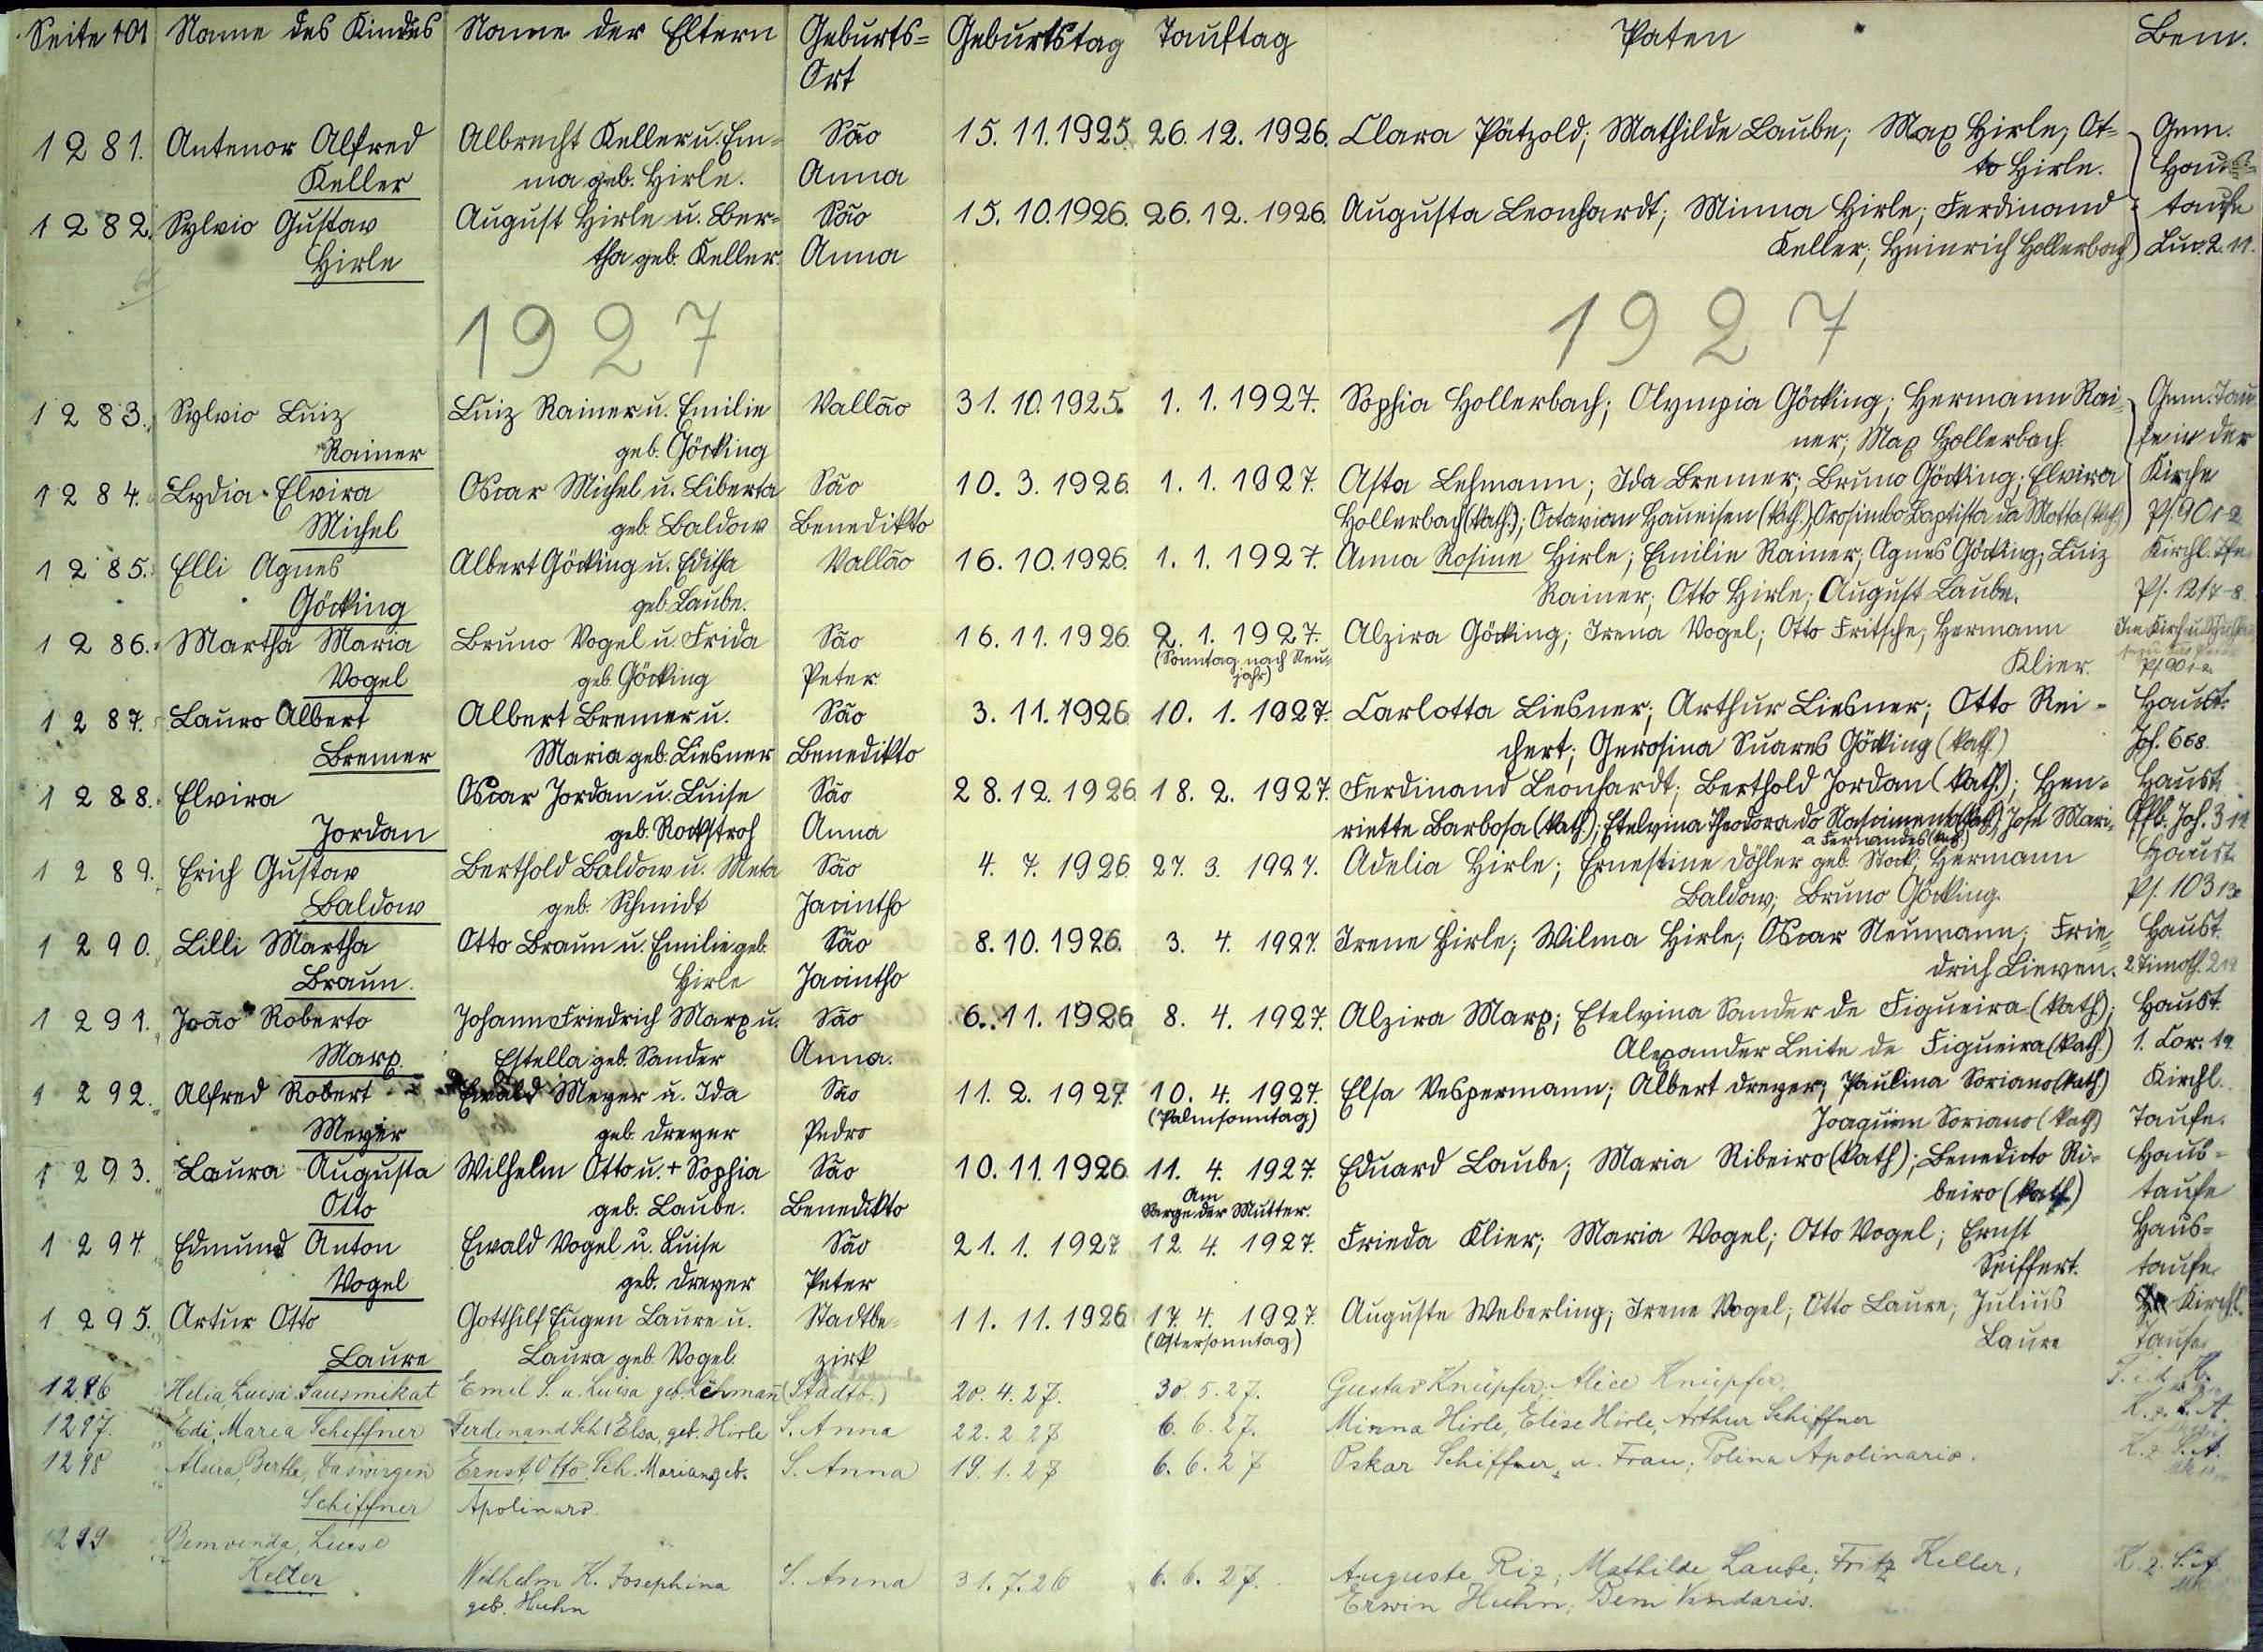 Seite 101 Name des Kindes Name der Eltern Geburts= Geburtstag Tauftag Paten Bem.
Ort
1281. Antenor Alfred Albrecht Keller u. Em= São 15. 11. 1925. 26. 12. 1926. Clara Pätzold; Mathilde Laube; Max Hirle; Ot= Gem.
Keller ma geb. Hirle. Anna to Hirle. Haus=
1282. Sylvio Gustav August Hirle u. Ber= São 15. 10. 1926. 26. 12. 1926. Augusta Leonhardt; Minna Hirle; Ferdinand taufe
Hirle tha geb. Keller. Anna Keller; Heinrich Hollerbach Luc. 2. 11.
1927 1927
1283. Sylvio Luiz Luiz Rainer u. Emilie Vallão 31. 10. 1925. 1. 1. 1927. Sophia Hollerbach; Olympia Göcking; Hermann Rai= Gem. Tau
Rainer geb. Göcking ner; Max Hollerbach. fe in der
1284. Lydia Elvira Oscar Michel u. Liberta São 10. 3. 1926. 1. 1. 1927. Asta Lehmann; Ida Bremer; Bruno Göcking; Elvira Kirche
Michel geb. Baldow Benedikto Hollerbach (kath.); Octavian Haueisen (kath.); Orosimbo Baptista da Motta (kath.) Ps. 90 1-2
1285. Elli Agnes Albert Göcking u. Editha Vallão 16. 10. 1926. 1. 1. 1927. Anna Rosine Hirle; Emilie Rainer; Agnes Göcking; Luiz Kirchl. Tfe
Göcking geb. Laube. Rainer; Otto Hirle; August Laube. Ps. 121 7-8.
1286. Martha Maria Bruno Vogel u. Frida São 16. 11. 1926. 2. 1. 1927. Alzira Göcking; Irena Vogel; Otto Fritsche; Hermann
Vogel geb. Göcking Peter (Sonntag nach Neu= Klier. Ps. 90 1-2
jahr)
1287. Lauro Albert Albert Bremer u. São 3. 11. 1926 10. 1. 1927. Carlotta Liesner; Arthur Liesner; Otto Rei= Haust.
Bremer Maria geb. Liesner Benedikto chert; Gerosina Suares Göcking (kath.) Joh. 6 68.
1288. Elvira Oscar Jordan u. Luise São 28. 12. 1926 18. 2. 1927. Ferdinand Leonhardt; Berthold Jordan (kath.); Hen= Haust.
Jordan geb. Rockstroh Anna riette Barbosa (kath.); Etelvina Theodora do Nascimento (kath.); José Mari= Offb. Joh. 3 11
a Fernandes (kath)
1289. Erich Gustav Berthold Baldow u. Meta São 4. 7. 1926. 27. 3. 1927. Adelia Hirle; Ernestine Döhler geb. Stock; Hermann Haust.
Baldow geb. Schmidt Jacintho Baldow; Bruno Göcking. Ps. 103 13
1290. Lilli Martha Otto Braun u. Emilie geb. São 8. 10. 1926. 3. 4. 1927. Irene Hirle; Wilma Hirle; Oscar Neumann; Frie= Haust.
Braun. Hirle Jacintho drich Lieven. 2. Timoth. 2 19
1291. João Roberto Johann Friedrich Marx u. São 6. 11. 1926 8. 4. 1927. Alzira Marx; Etelvina Sander de Figueira (kath); Haust.
Marx. Estella geb. Sander Anna. Alexander Leite de Figueira (kath.) 1. Cor. 19
1292. Alfred Robert Ewald Meyer u. Ida São 11. 2. 1927. 10. 4. 1927. Elsa Vespermann; Albert Dreyer; Paulina Soriano (kath) Kirchl.
Meyer geb. Dreyer Pedro (Palmsonntag) Joaquim Soriano (kath) Taufe.
1293. Laura Augusta Wilhelm Otto u. + Sophia São 10. 11. 1926 11. 4. 1927. Eduard Laube; Maria Ribeiro (kath); Benedicto Ri= Haus=
Otto geb. Laube. Benedikto Am Sarge der Mutter. beiro (kath) taufe
1294. Edmund Anton Ewald Vogel u. Luise São 21. 1. 1927. 12. 4. 1927. Frieda Klier; Maria Vogel; Otto Vogel; Ernst Haus=
Vogel geb. Dreyer Peter Seiffert. taufe
1295. Artur Otto Gotthilf Eugen Laure u. Stadtbe= 11. 11. 1926 17. 4. 1927. Auguste Weberling; Irene Vogel; Otto Laure; Julius Kirchl.
Laure Laura geb. Vogel. zirk (Ostersonntag) Laure Taufe
1296 Helia, Luisa Sausmikat Emil S. u. Luisa geb. Lehmann (Stadtb.) 20. 4. 27. 30. 5. 27. Gustav Knüpfer; Alice Knüpfer, T. i. d. K.
1297. Edi, Maria Schiffner Ferdinand Sch. Elsa, geb. Hirle S. Anna 22. 2 27 6. 6. 27. Minna Hirle, Elise Hirle, Arthur Schiffner K. z. S. A.
1298 Bertha, Ernst, Otto Sch. Maria geb. S. Anna 19. 1. 27 6. 6. 27 Oskar Schiffner u. Frau; Polina Apolinario. K. z. S. A.
Schiffner Apolinaro.
1299 Bemvinda, Luise
Keller Wilhelm K. Josephina S. Anna 31. 7. 26 6. 6. 27. Auguste Riz; Mathilde Laube; Fritz Keller, K. z. S. A.
geb. Huhn Erwin Huhn; Bem Vindario.